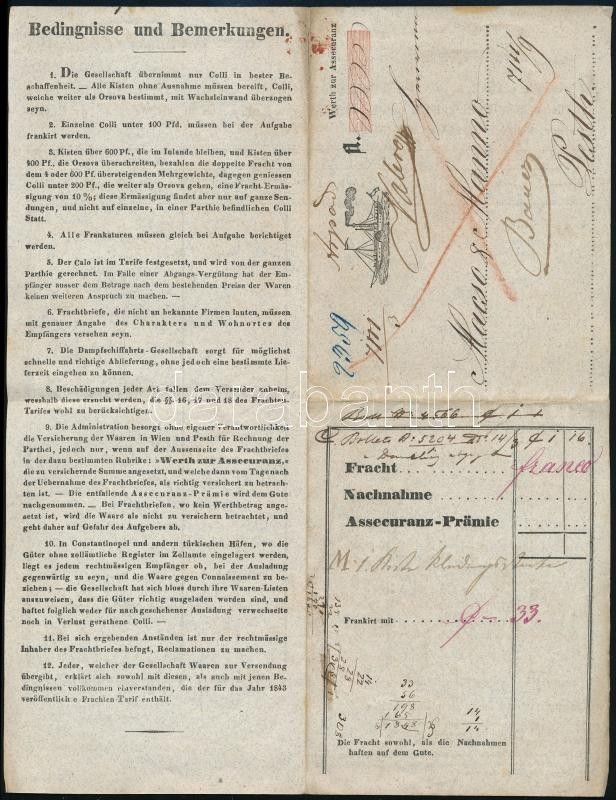 Bedingnisse und Bemerkungen.
1. Die Gesellschaft übernimmt nur Colli in bester Be-
schaffenheit. — Alle Kisten ohne Ausnahme müssen bereift, Colli,
welche weiter als Orsova bestimmt, mit Wachsleinwand überzogen
seyn.
2. Einzelne Colli unter 100 Pfd. müssen bei der Aufgabe
frankirt werden.
3. Kisten über 600 Pf., die im Inlande bleiben, und Kisten über
400 Pf., die Orsova überschreiten, bezahlen die doppelte Fracht von
dem 4 oder 600 Pf. übersteigenden Mehrgewichte, dagegen geniessen
Colli unter 200 Pf., die weiter als Orsova gehen, eine Fracht-Ermäs-
sigung von 10 %; diese Ermässigung findet aber nur auf ganze Sen-
dungen, und nicht auf einzelne, in einer Parthie befindlichen Colli
Statt.
4. Alle Frankaturen müssen gleich bei Aufgabe berichtiget
werden.
5. Der Calo ist im Tarife festgesetzt, und wird von der ganzen
Parthie gerechnet. Im Falle einer Abgangs-Vergütung hat der Em-
pfänger ausser dem Betrage nach dem bestehenden Preise der Waren
keinen weiteren Anspruch zu machen. —
6. Frachtbriefe, die nicht an bekannte Firmen lauten, müssen
mit genauer Angabe des Charakters und Wohnortes des
Empfängers versehen seyn.
7. Die Dampfschiffahrts-Gesellschaft sorgt für möglichst
schnelle und richtige Ablieferung, ohne jedoch eine bestimmte Lie-
ferzeit eingehen zu können.
8. Beschädigungen jeder Art fallen dem Versender anheim,
wesshalb diese ersucht werden, die §§. 16, 17 und 18 des Frachten-
Tarifes wohl zu berücksichtigen.
9. Die Administration besorgt ohne eigener Verantwortlichkeit
die Versicherung der Waaren in Wien und Pesth für Rechnung der
Parthei, jedoch nur, wenn auf der Aussenseite des Frachtbriefes
in der dazu bestimmten Rubrike: »Werth zur Assecuranz,«
die zu versichernde Summe angesetzt, und welche dann vom Tage nach
der Uebernahme des Frachtbriefes, als richtig versichert zu betrach-
ten ist. — Die entfallende Assecuranz-Prämie wird dem Gute
nachgenommen. — Bei Frachtbriefen, wo kein Werthbetrag ange-
setzt ist, wird die Waare als nicht zu versichern betrachtet, und
geht daher auf Gefahr des Aufgebers ab.
10. In Constantinopel und andern türkischen Häfen, wo die
Güter ohne zollämtliche Register im Zollamte eingelagert werden,
liegt es jedem rechtmässigen Empfänger ob, bei der Ausladung
gegenwärtig zu seyn, und die Waare gegen Connaissement zu be-
ziehen; — die Gesellschaft hat sich bloss durch ihre Waaren-Listen
auszuweisen, dass die Güter richtig ausgeladen worden sind, und
haftet folglich weder für nachgeschehener Ausladung verwechselte
noch in Verlust gerathene Colli. —
11. Bei sich ergebenden Anständen ist nur der rechtmässige
Inhaber des Frachtbriefes befugt, Reclamationen zu machen.
12. Jeder, welcher der Gesellschaft Waaren zur Versendung
übergibt, erklärt sich sowohl mit diesen, als auch mit jenen Be-
dingnissen vollkommen einverstanden, die der für das Jahr 1843
veröffentlichte Frachten-Tarif enthält.
Werth zur Assecuranz
fl.
6256
Pesth
darabanth
Bolleta No. 5204
Fracht
franco
Nachnahme
Assecuranz-Prämie
Frankirt mit
33
33
56
198
165
1848
14
1
14
308
Die Fracht sowohl, als die Nachnahmen
haften auf dem Gute.